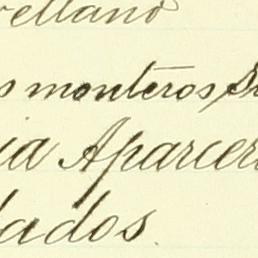 vellano
s monteros, s
ia Aparcer
lados.